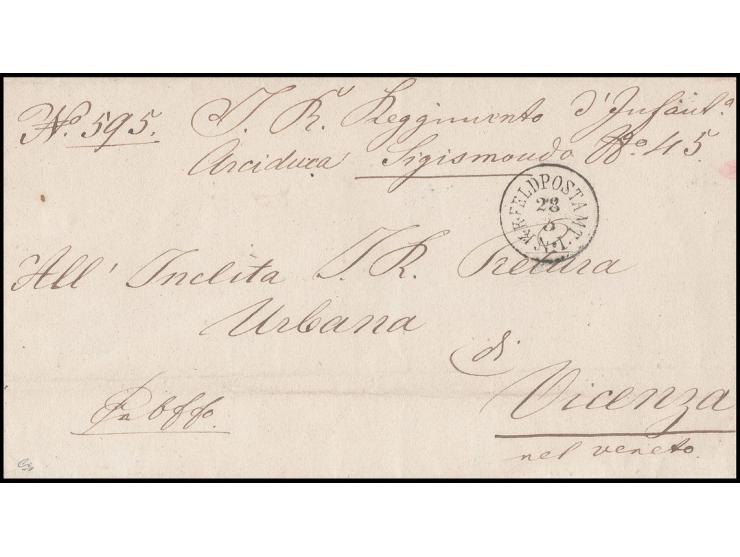 No. 595. I. R. Reggimento d'Infant.a
Arciduca Sigismondo No. 45
K.K. FELDPOSTAMT N. I.
28
All' Inclita I. R. Pretura
Urbana
di
Vicenza
nel veneto